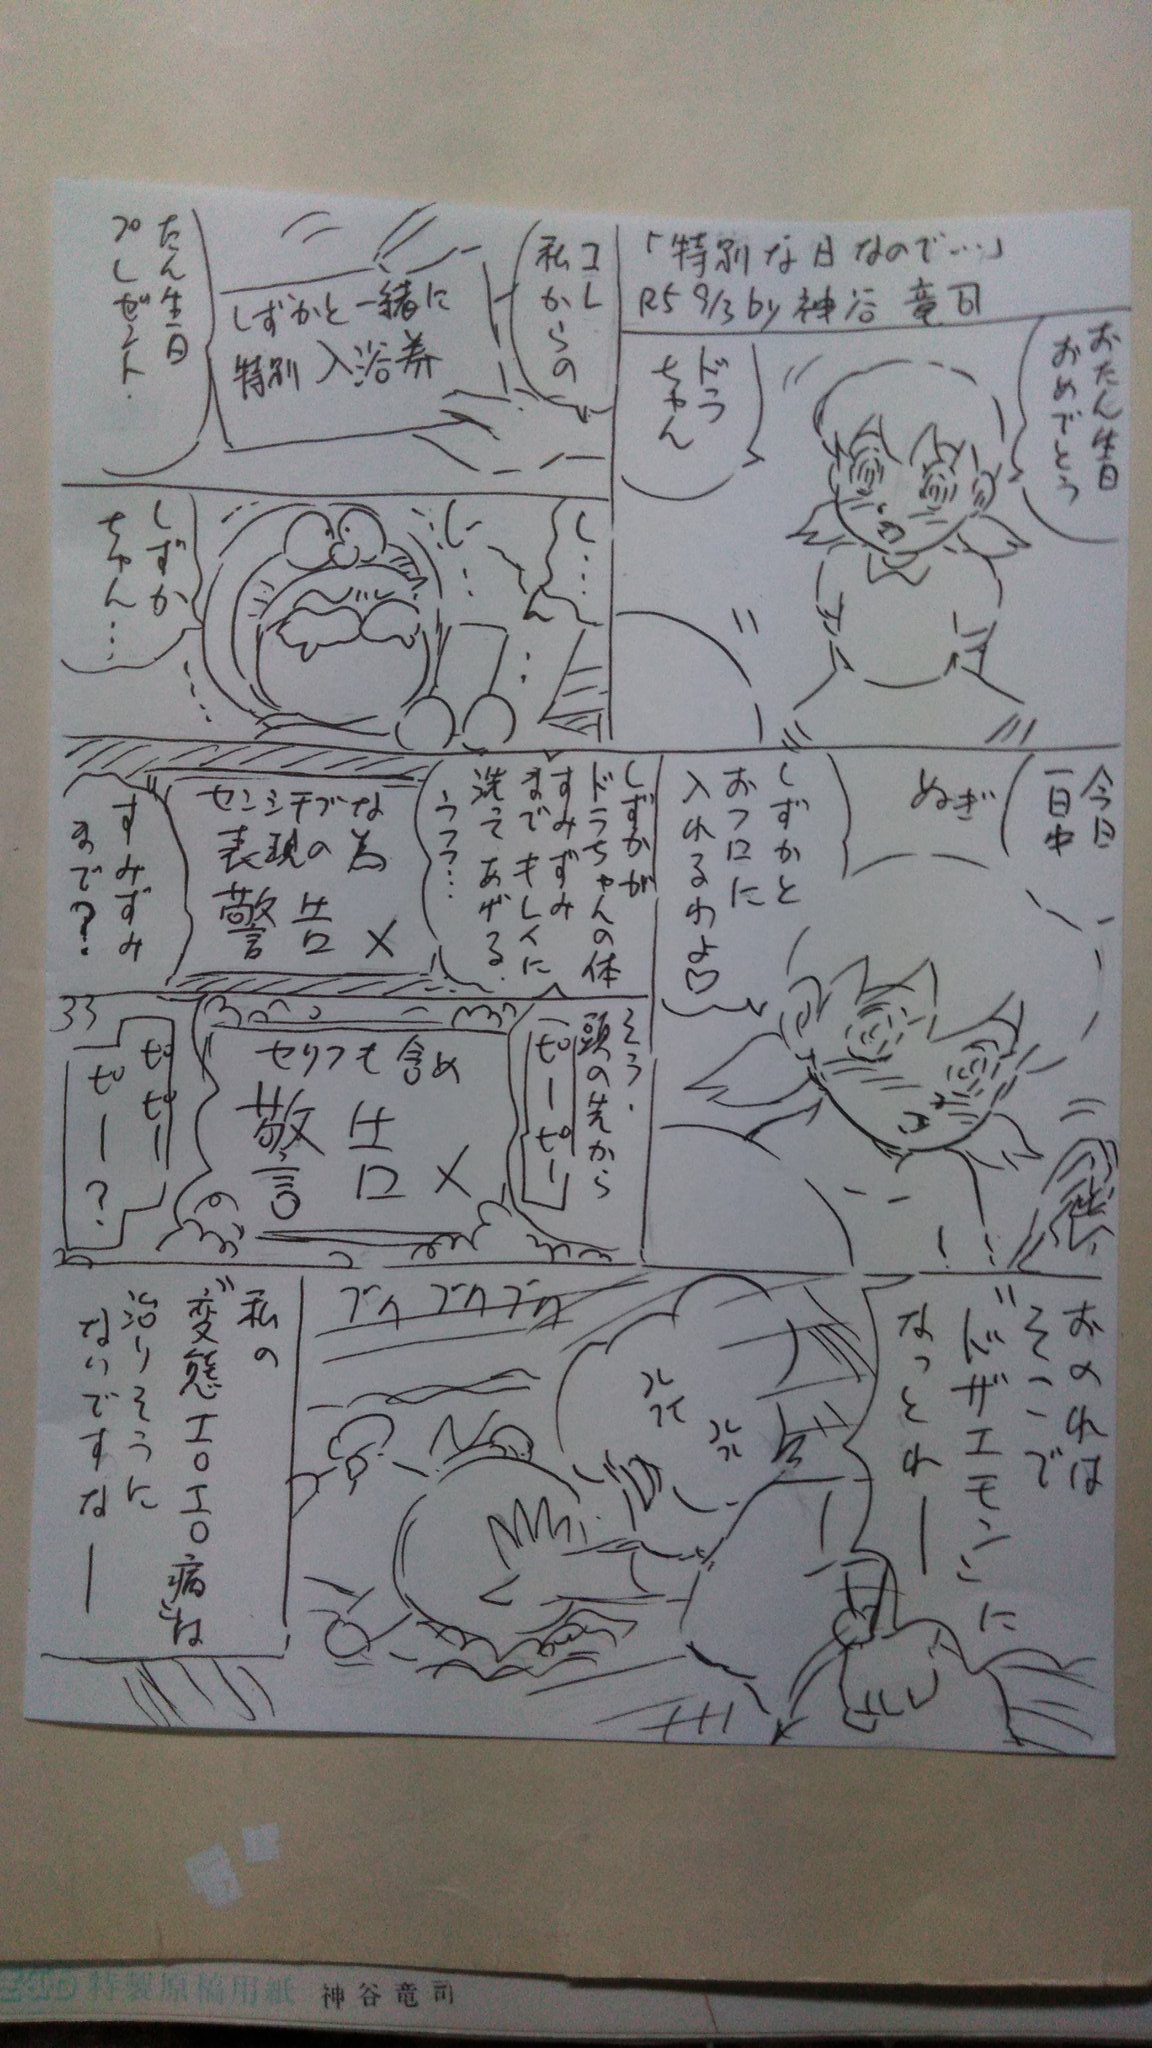 「特別な日なので…」
R5 9/3 by 神谷竜司
おたん生日
おめでとう
ドラ
ちゃん
コレ
私からの
しずかと一緒に
特別 入浴券
たん生日
プレゼント.
し…
し…
ん…
しずか
ちゃん…
今日
一日中
ぬぎ
しずかと
おフロに
入れるわよ♡
しずかが
ドラちゃんの体
すみずみ
までキレイに
洗ってあげる.
ウフフ…
センシチブな
表現の為
警告×
すみずみ
まで?
そう.
頭の先から
ピーピー
セリフも含め
警告×
ピピー
ピー?
おのれは
そこで
"ドザエモン"に
なっとれー
ブクブクブク
私の
"変態エロエロ病"は
治りそうに
ないですなー
特製原稿用紙 神谷竜司